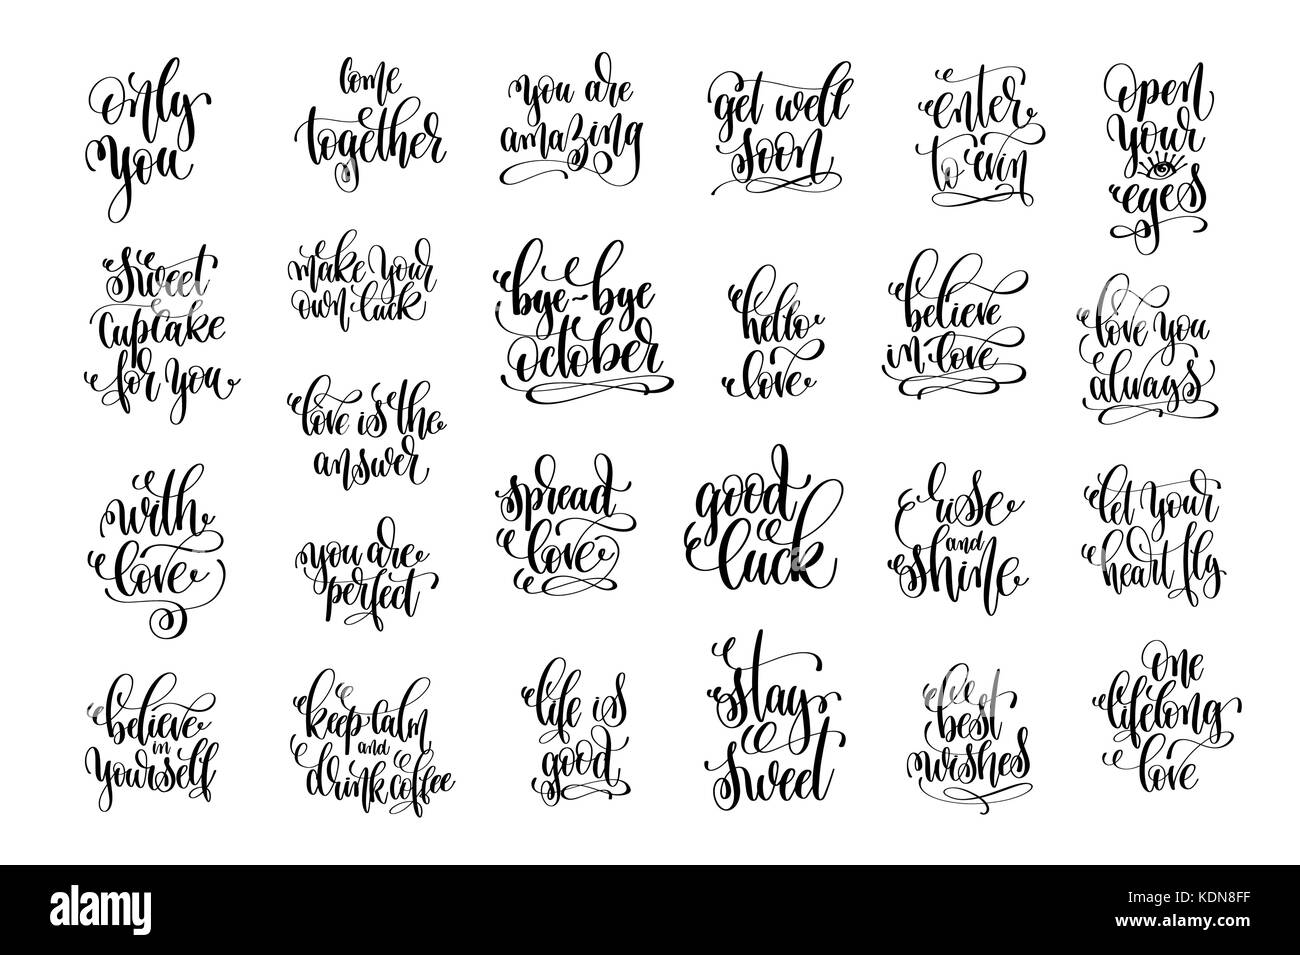 only
you
come
together
you are
amazing
get well
soon
enter
to win
open
your
eyes
sweet
cupcake
for you
make your
own luck
bye-bye
october
hello
love
believe
in love
love you
always
love is the
answer
with
love
you are
perfect
spread
love
good
luck
rise
and
shine
let your
heart fly
believe
in
yourself
keep calm
and
drink coffee
life is
good
stay
sweet
best
wishes
one
lifelong
love
alamy
alamy
Image ID: KDN8FF
www.alamy.com